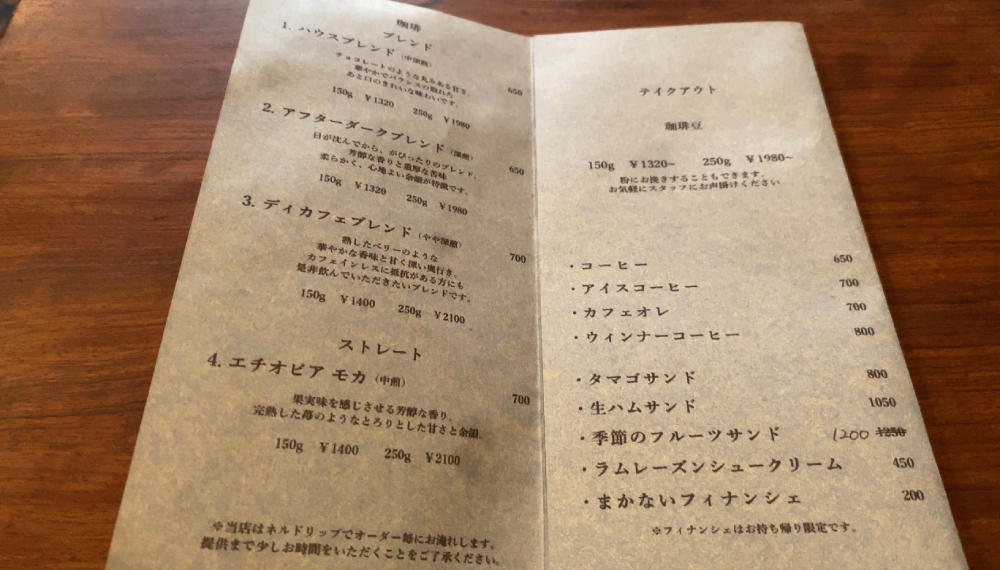 珈琲
ブレンド
1. ハウスブレンド（中深煎）
チョコレートのような丸みある甘さ。
華やかでバランスの取れた
あと口のきれいな味わいです。
650
150g ￥1320 250g ￥1980
2. アフターダークブレンド（深煎）
日が沈んでから、がぴったりのブレンド。
芳醇な香りと重厚な苦味
柔らかく、心地よい余韻が特徴です。
650
150g ￥1320 250g ￥1980
3. ディカフェブレンド（やや深煎）
熟したベリーのような
華やかな香味と甘く深い奥行き。
カフェインレスに抵抗がある方にも
是非飲んでいただきたいブレンドです。
700
150g ￥1400 250g ￥2100
ストレート
4. エチオピア モカ（中煎）
果実味を感じさせる芳醇な香り。
完熟した苺のようなとろりとした甘さと余韻。
700
150g ￥1400 250g ￥2100
※当店はネルドリップでオーダー毎にお淹れします。
提供まで少しお時間をいただくことをご了承ください。
テイクアウト
珈琲豆
150g ￥1320~ 250g ￥1980~
粉にお挽きすることもできます。
お気軽にスタッフにお声掛けください
・コーヒー 650
・アイスコーヒー 700
・カフェオレ 700
・ウィンナーコーヒー 800
・タマゴサンド 800
・生ハムサンド 1050
・季節のフルーツサンド 1200
・ラムレーズンシュークリーム 450
・まかないフィナンシェ 200
※フィナンシェはお持ち帰り限定です。